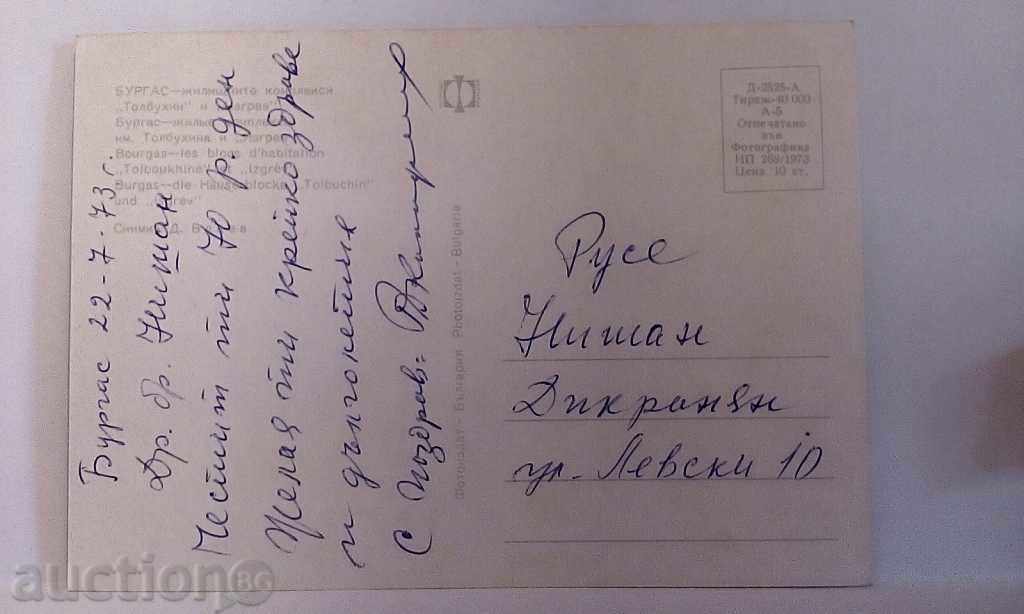 БУРГАС—жилищните комплекси
„Толбухин" и „Изгрев"
Бургас—жилые комплексы
им. Толбухина и „Изгрев"
Bourgas—les blocs d'habitation
„Tolboukhine" et „Izgrev"
Burgas—die Häuserblocks „Tolbuchin"
und „Izgrev"
Снимка Д.
Бургас 22-7-73 г.
Др. бр. Нишан
Честит ти 70 р. ден
Желая ти крейко здраве
и дънголетие
С поздрав:
Фотоиздат - България Photoizdat - Bulgarie
Д-2525-А
Тираж 40 000
А-5
Отпечатано
във
Фотографика
ИП 269/1973
Цена 10 ст.
Русе
Нишан
Дикранян
ул. Левски 10
auction BG